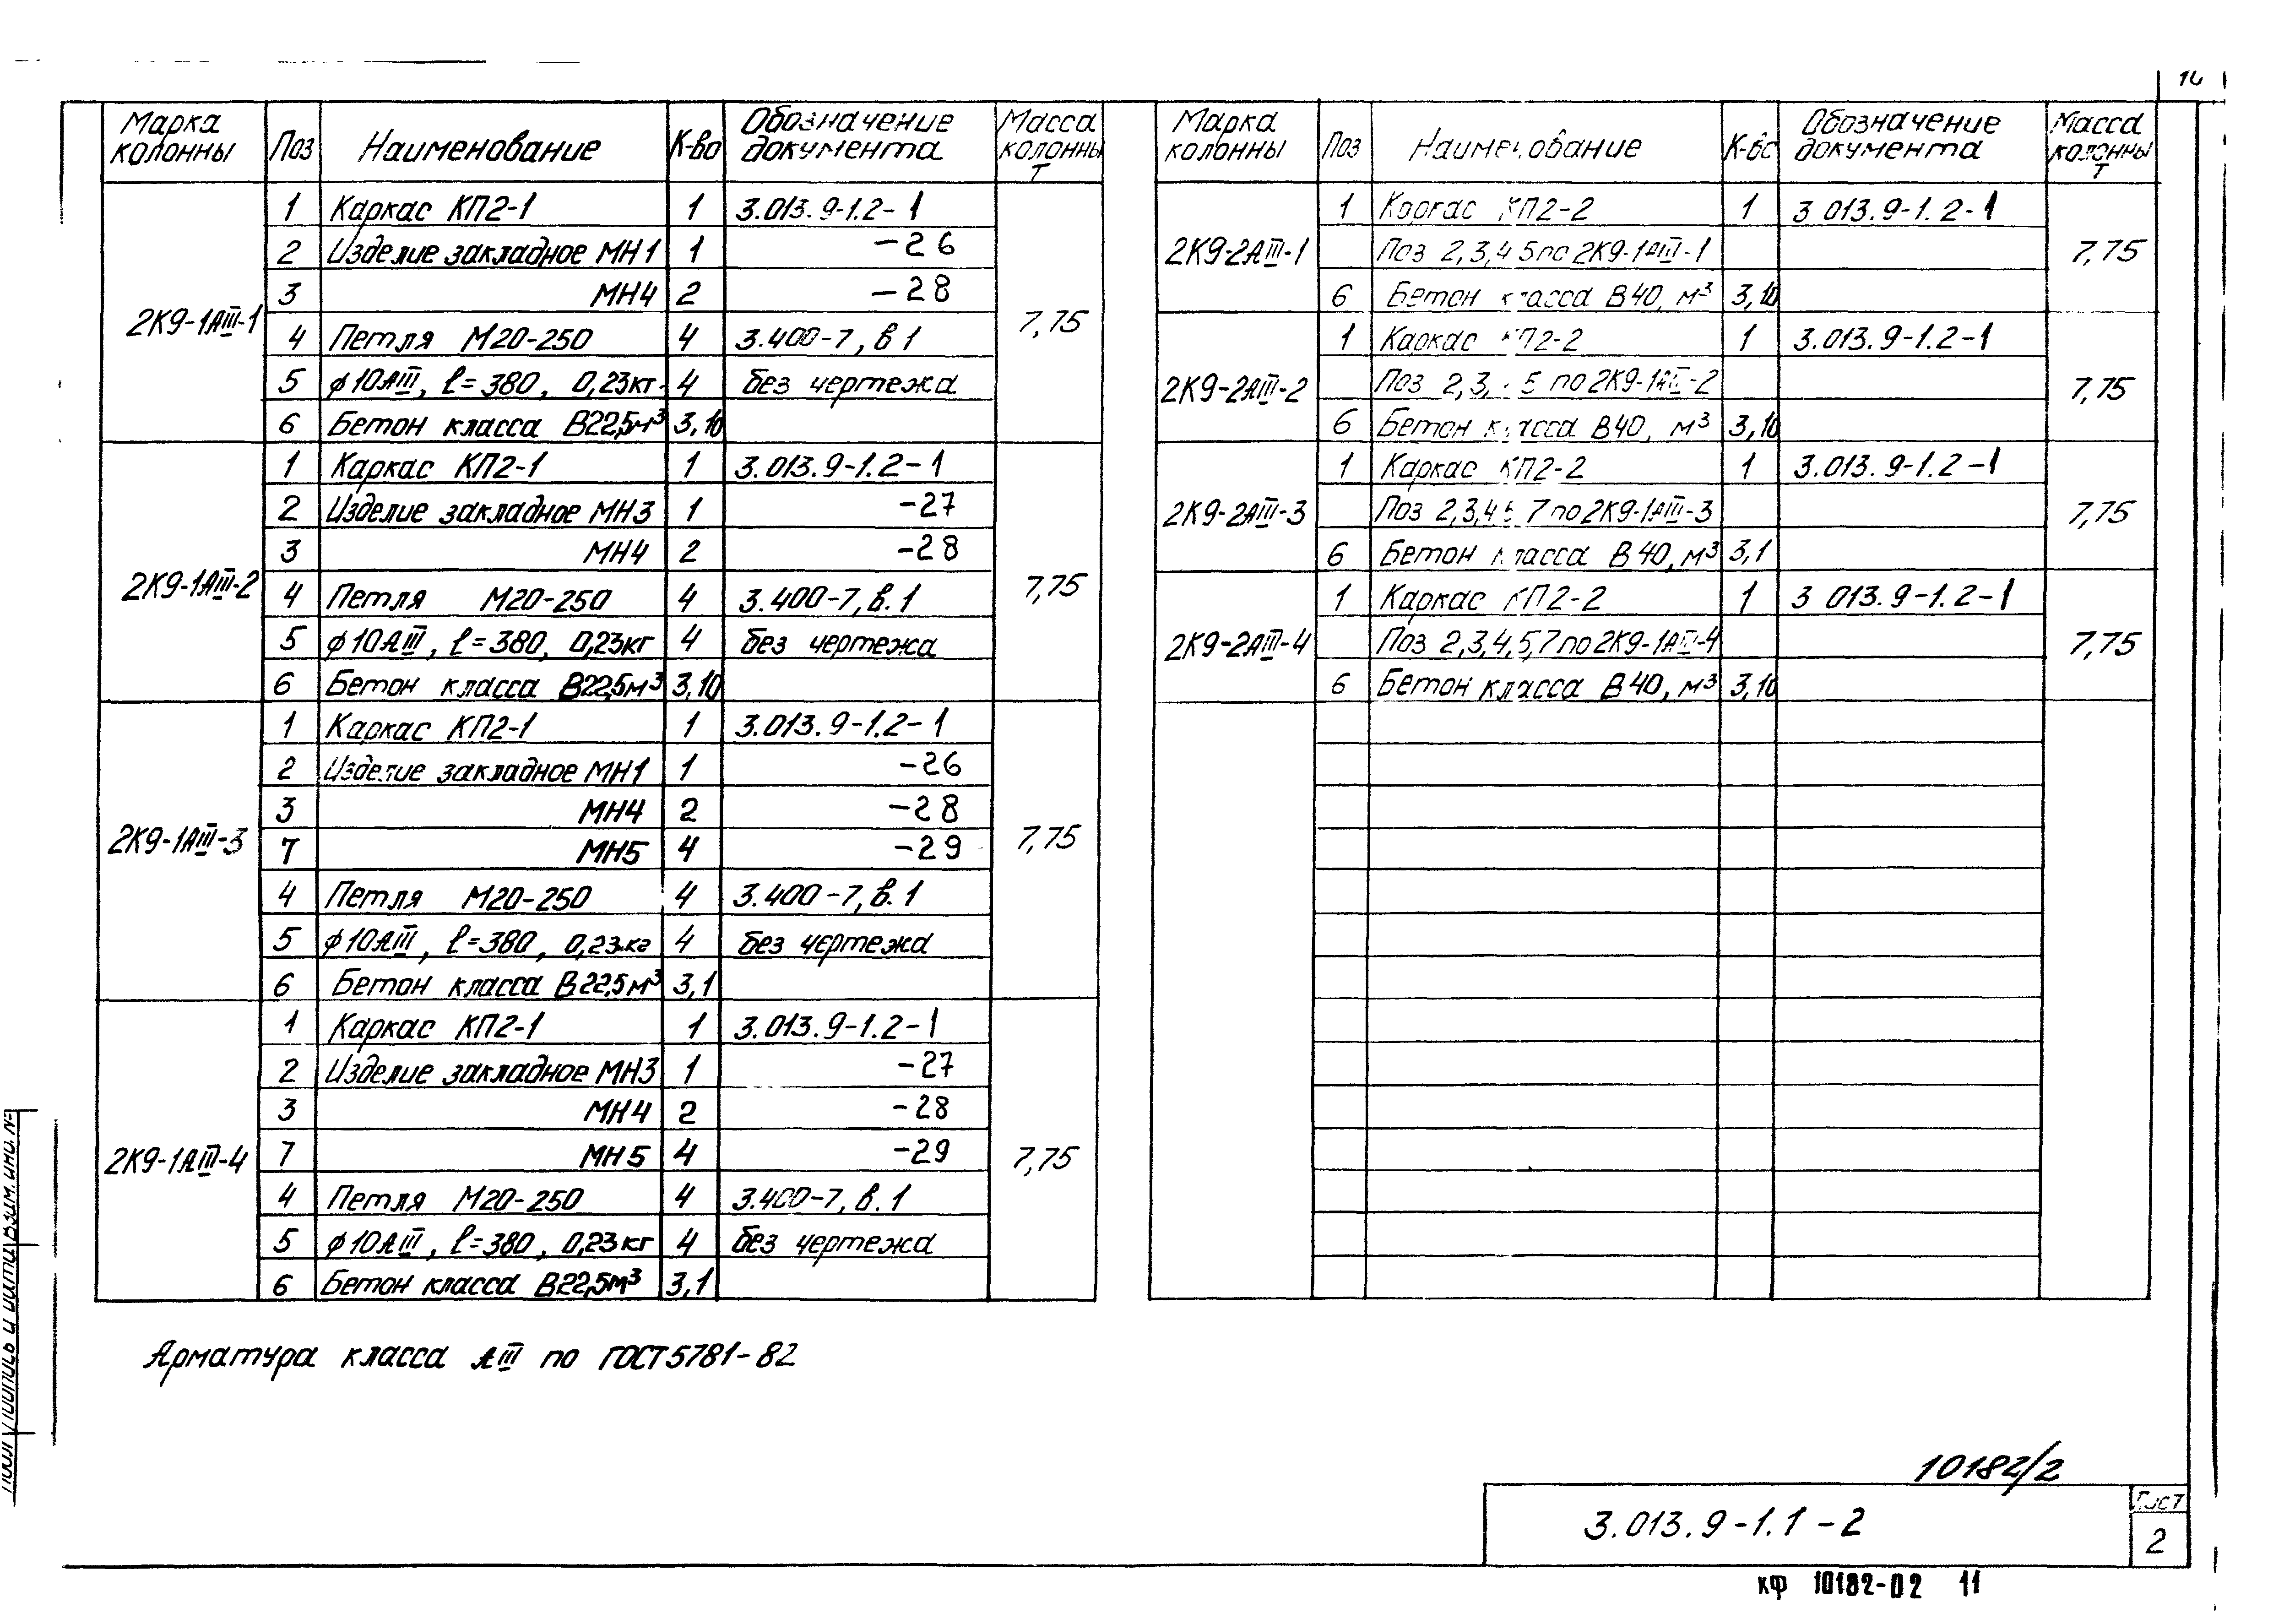 Марка колонны | Поз | Наименование | К-во | Обозначение документа | Масса колонны Т
2К9-1АIII-1 | 1 | Каркас КП2-1 | 1 | 3.013.9-1.2-1 | 7,75
2 | Изделие закладное МН1 | 1 | -26
3 | МН4 | 2 | -28
4 | Петля М20-250 | 4 | 3.400-7, в 1
5 | ϕ10АIII, ℓ=380, 0,23кг | 4 | без чертежа
6 | Бетон класса В22,5м³ | 3,10
2К9-1АIII-2 | 1 | Каркас КП2-1 | 1 | 3.013.9-1.2-1 | 7,75
2 | Изделие закладное МН3 | 1 | -27
3 | МН4 | 2 | -28
4 | Петля М20-250 | 4 | 3.400-7, в.1
5 | ϕ10АIII, ℓ=380, 0,23кг | 4 | без чертежа
6 | Бетон класса В22,5м³ | 3,10
2К9-1АIII-3 | 1 | Каркас КП2-1 | 1 | 3.013.9-1.2-1 | 7,75
2 | Изделие закладное МН1 | 1 | -26
3 | МН4 | 2 | -28
7 | МН5 | 4 | -29
4 | Петля М20-250 | 4 | 3.400-7, в.1
5 | ϕ10АIII, ℓ=380, 0,23кг | 4 | без чертежа
6 | Бетон класса В22,5м³ | 3,1
2К9-1АIII-4 | 1 | Каркас КП2-1 | 1 | 3.013.9-1.2-1 | 7,75
2 | Изделие закладное МН3 | 1 | -27
3 | МН4 | 2 | -28
7 | МН5 | 4 | -29
4 | Петля М20-250 | 4 | 3.400-7, в.1
5 | ϕ10АIII, ℓ=380, 0,23кг | 4 | без чертежа
6 | Бетон класса В22,5м³ | 3,1
Марка колонны | Поз | Наименование | К-во | Обозначение документа | Масса колонны Т
2К9-2АIII-1 | 1 | Каркас КП2-2 | 1 | 3 013.9-1.2-1 | 7,75
Поз 2,3,4 5 по 2К9-1АIII-1
6 | Бетон класса В40, м³ | 3,10
2К9-2АIII-2 | 1 | Каркас КП2-2 | 1 | 3.013.9-1.2-1 | 7,75
Поз 2,3,4 5 по 2К9-1АIII-2
6 | Бетон класса В40, м³ | 3,10
2К9-2АIII-3 | 1 | Каркас КП2-2 | 1 | 3.013.9-1.2-1 | 7,75
Поз 2,3,4 5 7 по 2К9-1АIII-3
6 | Бетон класса В40, м³ | 3,1
2К9-2АIII-4 | 1 | Каркас КП2-2 | 1 | 3 013.9-1.2-1 | 7,75
Поз 2,3,4,5,7 по 2К9-1АIII-4
6 | Бетон класса В40, м³ | 3,10
Арматура класса АIII по ГОСТ 5781-82
10182/2
3.013.9-1.1-2
Лист
2
кф 10182-02 11
Подпись и дата
Взам. инв. №